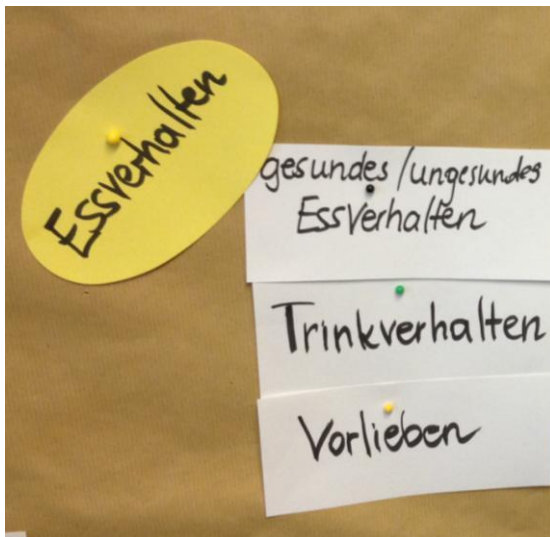 Essverhalten
gesundes/ungesundes
Essverhalten
Trinkverhalten
Vorlieben